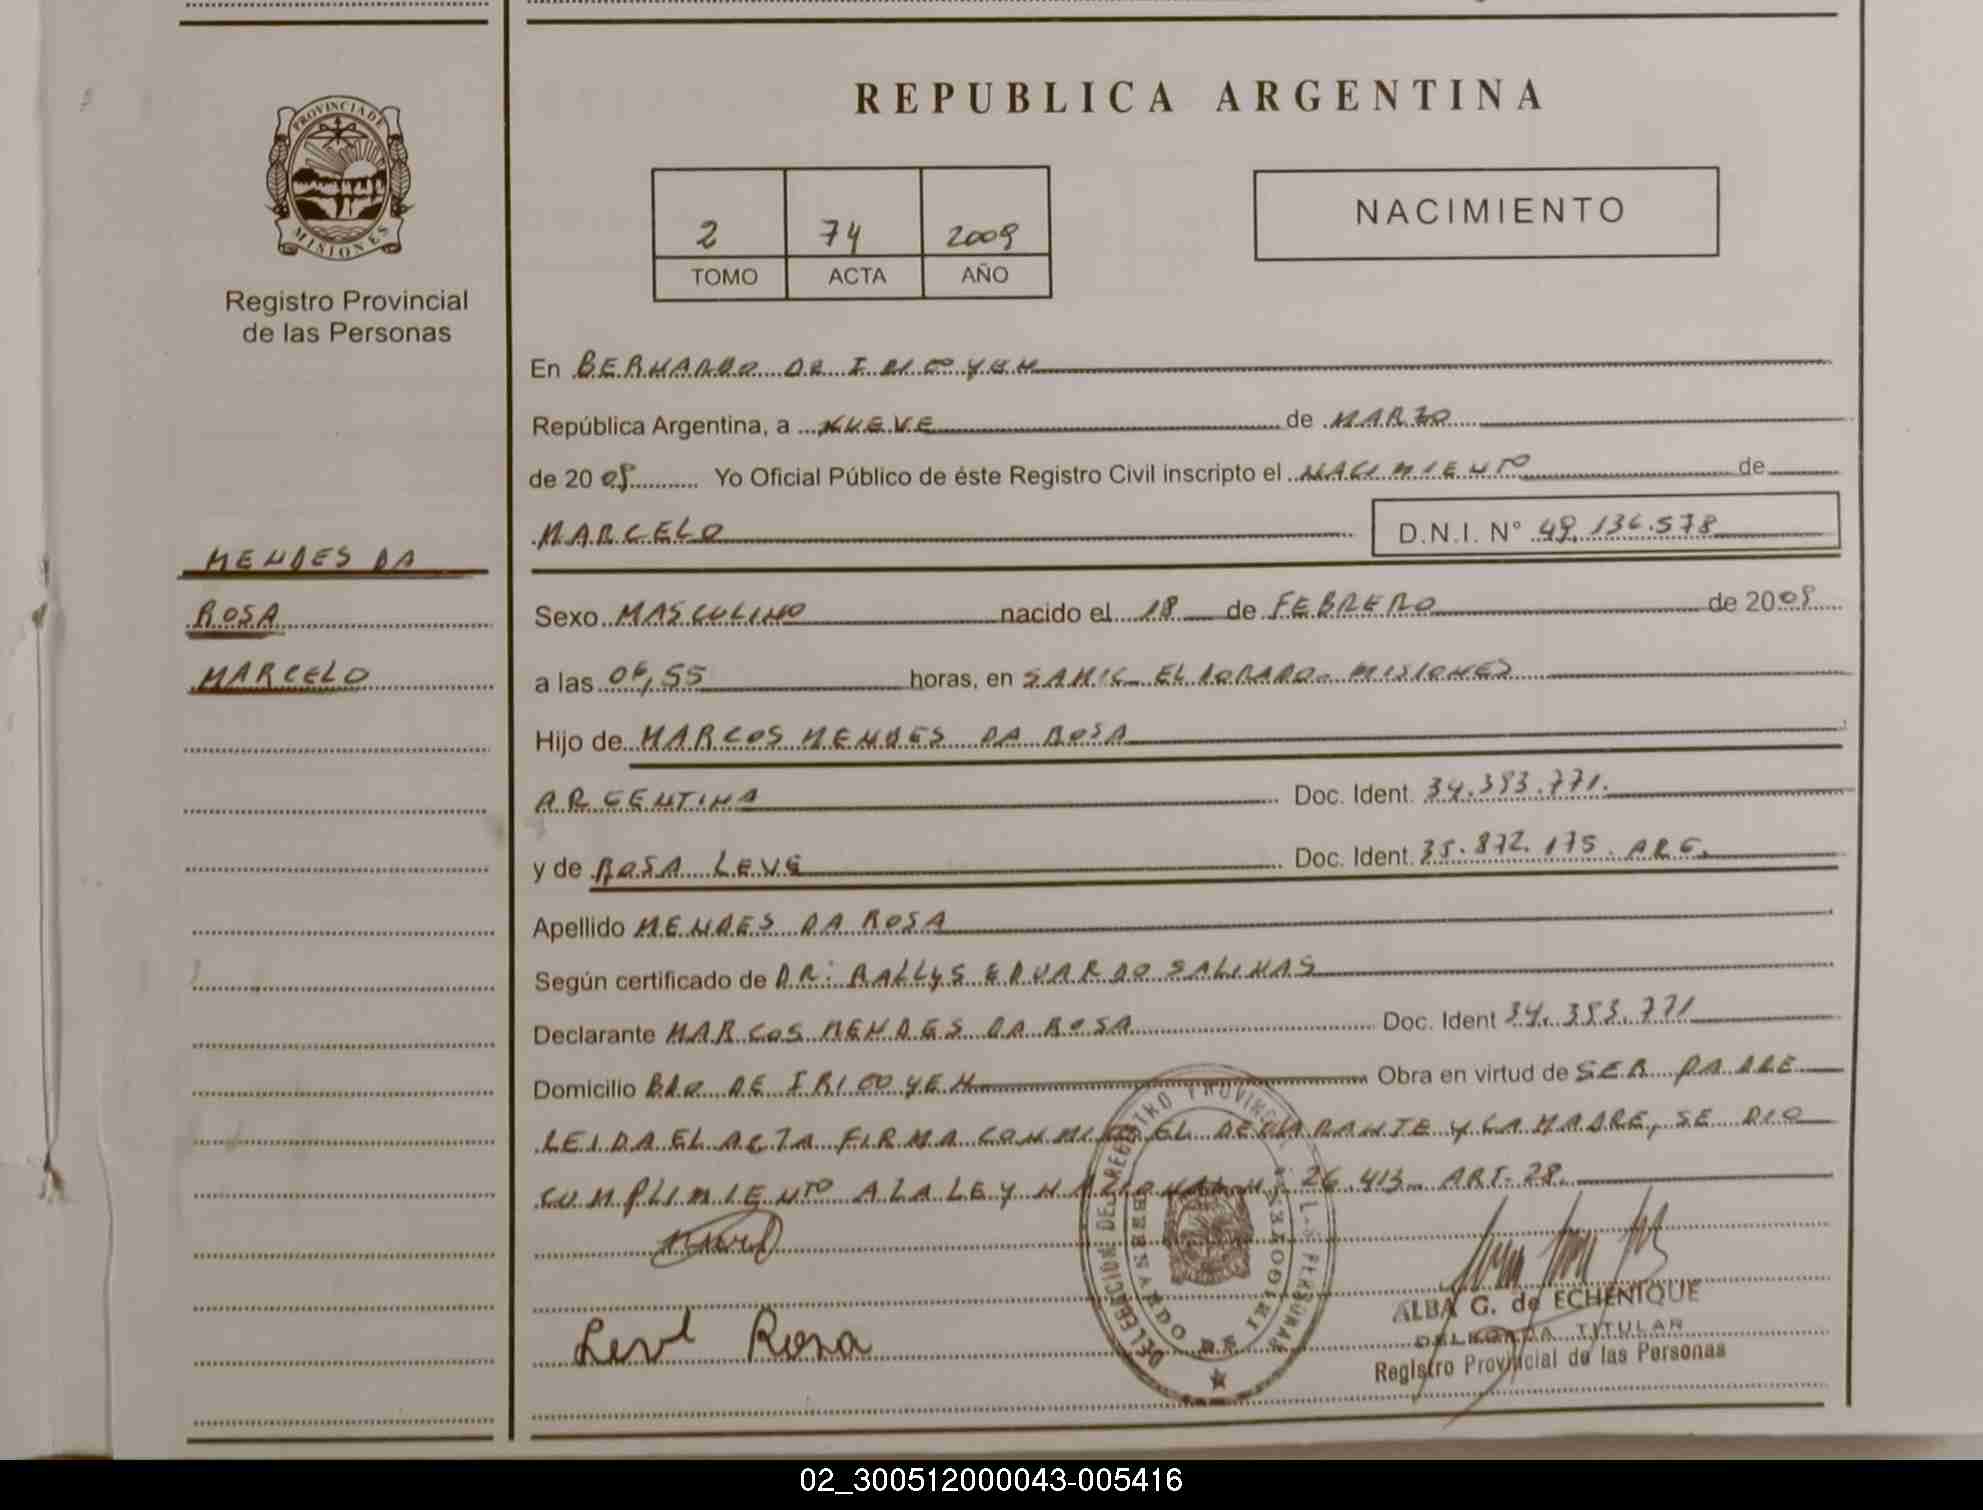 REPUBLICA ARGENTINA
PROVINCIA DE
MISIONES
Registro Provincial
de las Personas
2 74 2009
TOMO ACTA AÑO
NACIMIENTO
En BERNARDO DE IRIGOYEN
República Argentina, a NUEVE de MARZO
de 2009 Yo Oficial Público de éste Registro Civil inscripto el NACIMIENTO de
MARCELO D.N.I. N° 49.136.578
MENDES DA
ROSA
MARCELO
Sexo MASCULINO nacido el 18 de FEBRERO de 2009
a las 06,55 horas, en SAMIC ELDORADO- MISIONES
Hijo de MARCOS MENDES DA ROSA
ARGENTINA Doc. Ident. 34.393.771.
y de ROSA LEVE Doc. Ident. 35.872.175. ARG.
Apellido MENDES DA ROSA
Según certificado de DR: RALLYS EDUARDO SALINAS
Declarante MARCOS MENDES DA ROSA Doc. Ident 34.393.771
Domicilio BDO DE IRIGOYEN Obra en virtud de SER PADRE
LEIDA EL ACTA FIRMA CONMIGO EL DECLARANTE Y LA MADRE, SE DIO
CUMPLIMIENTO A LA LEY NACIONAL N: 26.413- ART. 28.
DELEGACION DEL REGISTRO PROVINCIAL PERSONAS
BERNARDO DE IRIGOYEN
Rosa
ALBA G. de ECHENIQUE
DELEGADA TITULAR
Registro Provincial de las Personas
02_300512000043-005416